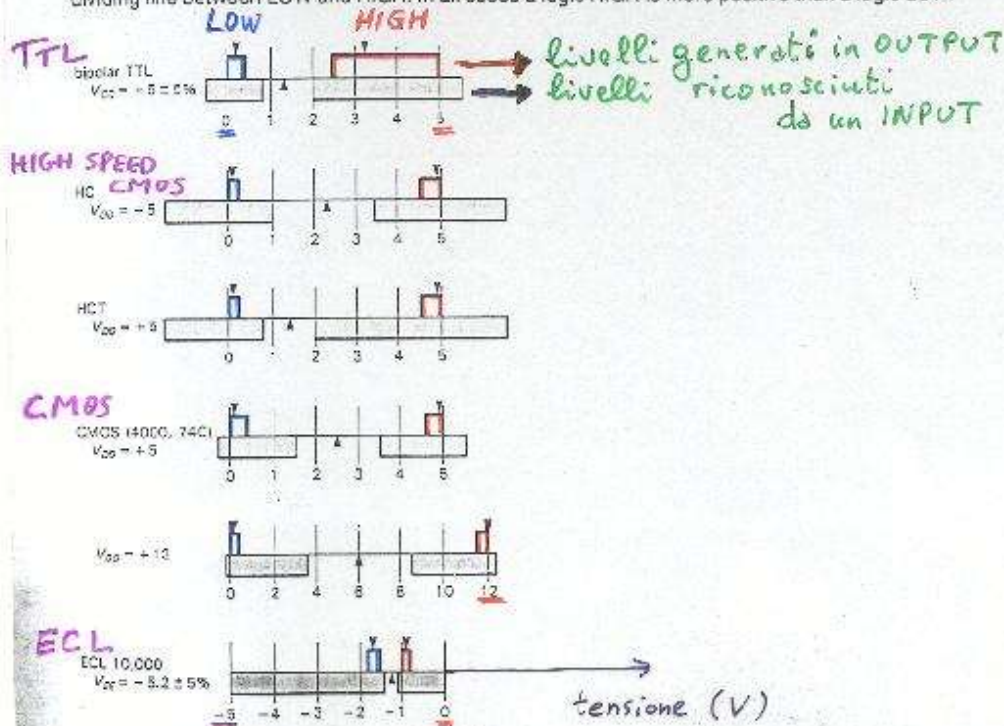 dividing line between LOW and HIGH. In all cases a logic HIGH is more positive than a logic LOW.
LOW HIGH
TTL
bipolar TTL
V_CC = +5 ± 5%
0 1 2 3 4 5
livelli generati in OUTPUT
livelli riconosciuti
da un INPUT
HIGH SPEED
CMOS
HC
V_DD = +5
0 1 2 3 4 5
HCT
V_DD = +5
0 1 2 3 4 5
CMOS
CMOS (4000, 74C)
V_DD = +5
0 1 2 3 4 5
V_DD = +12
0 2 4 6 8 10 12
ECL
ECL 10,000
V_EE = -5.2 ± 5%
-5 -4 -3 -2 -1 0
tensione (V)